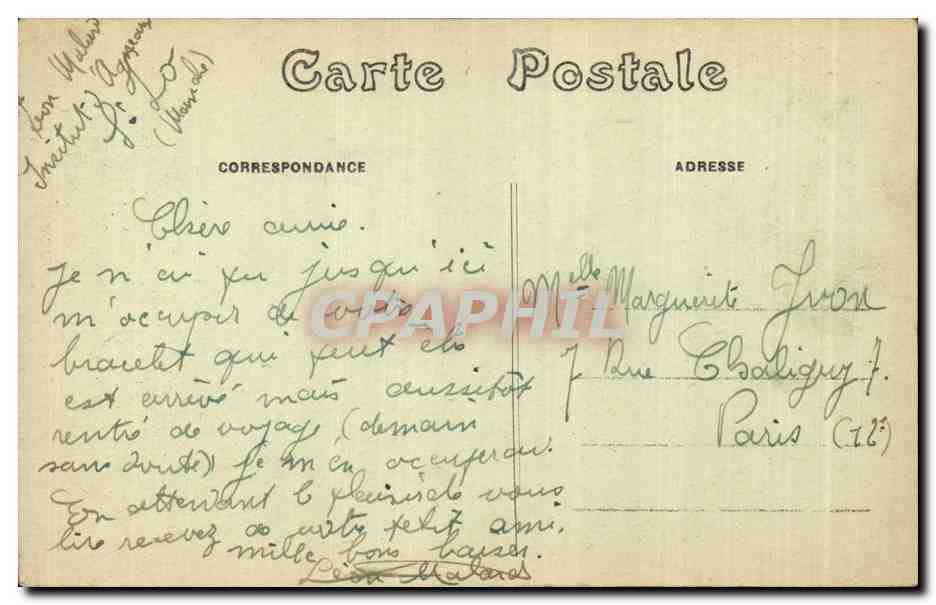 Léon Malard
Institut Agneaux
St Lo
(Manche)
Carte Postale
CORRESPONDANCE
ADRESSE
Chère amie.
Je n'ai pu jusqu'ici
m'occuper de votre
bracelet qui peut être
est arrivé mais aussitôt
rentré de voyage (demain
sans doute) je m'en occuperai.
En attendant le plaisir de vous
lire recevez de votre petit ami.
mille bons baisers.
Léon Malard
Melle Marguerite Yvon
7 Rue Chaligny 7.
Paris (12e)
CPAPHIL